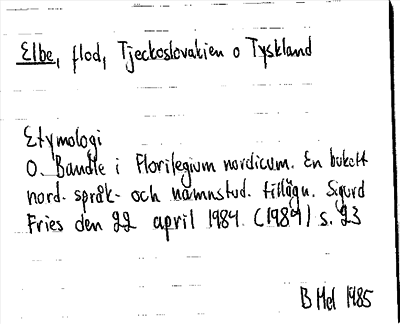 Elbe, flod, Tjeckoslovakien o Tyskland
Etymologi
O. Bandle i Florilegium nordicum. En bukett
nord. språk- och namnstud. tillägn. Sigurd
Fries den 22 april 1984. (1984) s. 23
B Hel 1985